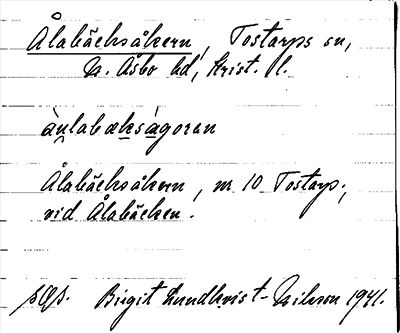 Ålabäcksåkern, Tostarps sn,
N. Åsbo hd, Krist. l.
àu̯labækságoren
Ålabäcksåkern, nr 10 Tostarp,
vid Ålabäcken.
Birgit Lundkvist-Nilsson 1941.